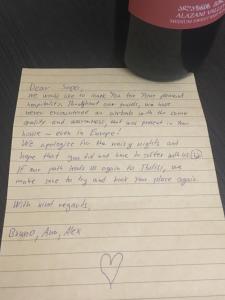 ALAZANI VALLEY
Dear Super,
we would like to thank you for your pleasant
hospitality. Throughout our travels, we have
never encountered an airbnb with the same
quality and awesomeness that was present in your
house – even in Europe!
We apologize for the noisy nights and
hope that you did not have to suffer with us
If our path leads us again to Tbilisi, we
make sure to try and book your place again.
With kind regards,
Bruno, Ann, Alex